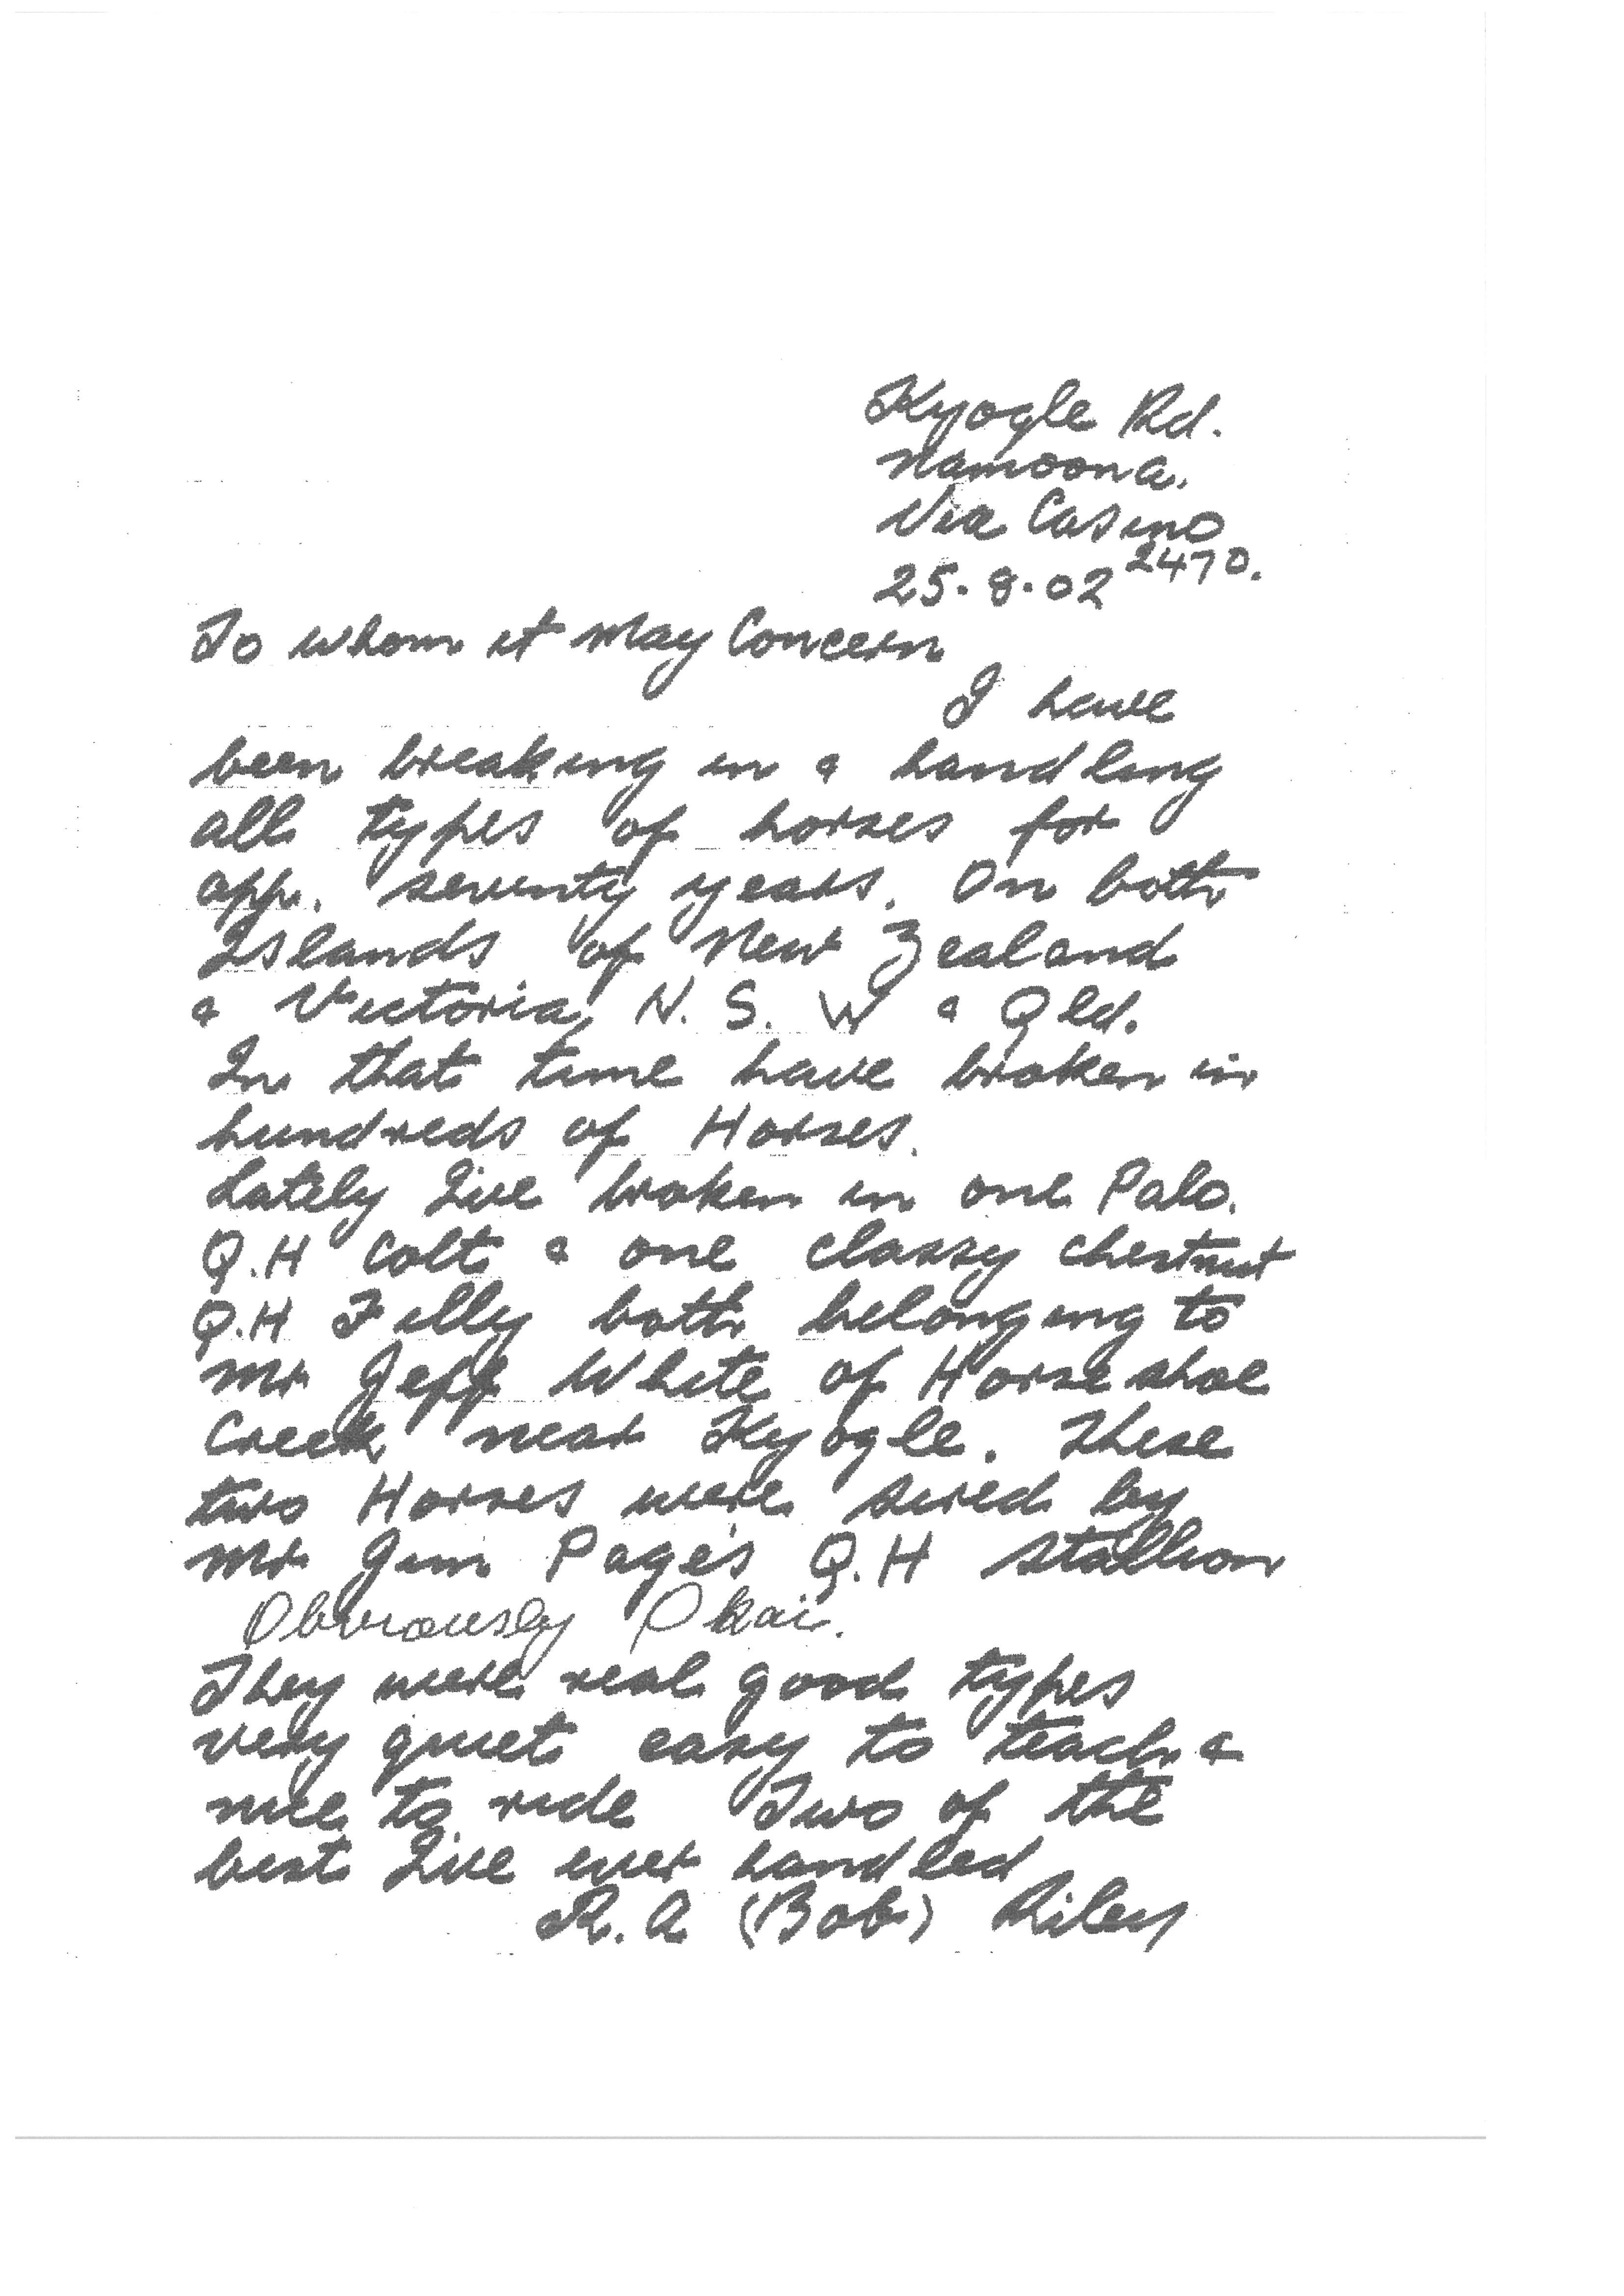 Kyogle Rd.
Namoona.
Via Casino
2470.
25.8.02
To whom it May Concern
I have
been breaking in & handling
all types of horses for
app. seventy years. On both
Islands of New Zealand
& Victoria, N. S. W & Qld.
In that time have broken in
hundreds of Horses.
Lately I've broken in one Palo.
Q.H Colt & one classy chestnut
Q.H Filly both belonging to
Mr Jeff White of Horse shoe
Creek near Kyogle. These
two Horses were sired by
Mr Jim Page's Q.H stallion
Obviously Okai.
They were real good types
very quiet easy to teach &
nice to ride Two of the
best I've ever handled
R.A (Bob) Riley